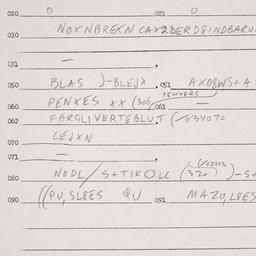 020 0 021 0
030 NOXNBREXN CAX2DERD8INDBARU
031 —
050 BLAS )-BLEJX. 051 AXO8WS+A
PENNERS
060 PENXES XX (306/ 061 —
062 FARGLIVERTEBLUT (/034070
070 CEJXN
071 —
080 NODL/S+TIKOLC (320) (/02407 )-S+
090 ((PU,SL8ES QU 091 MAZO,L8ES